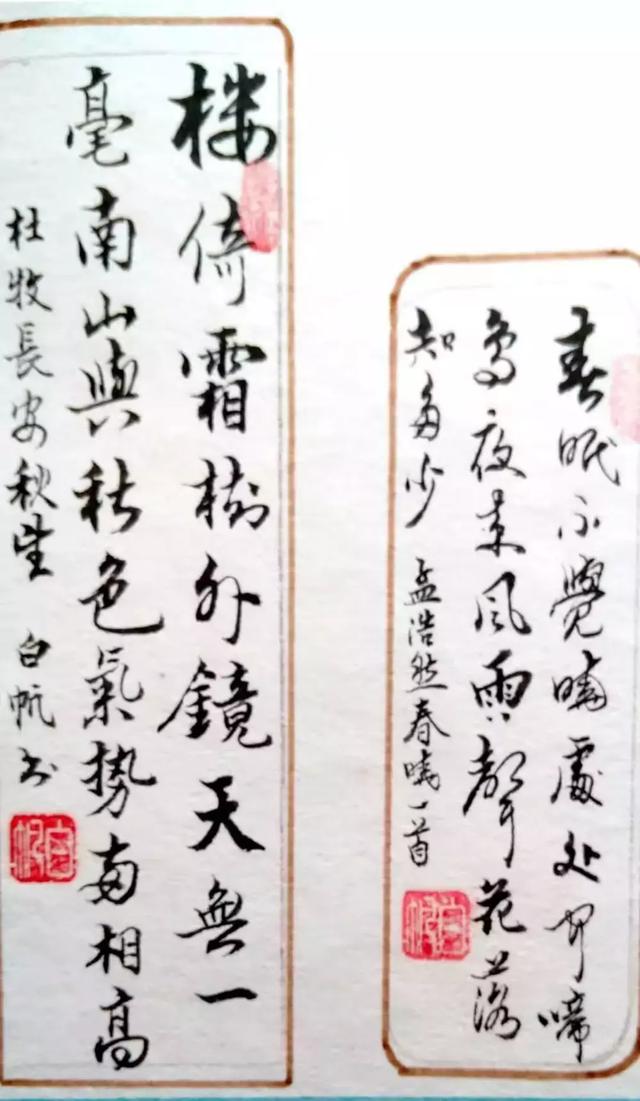 春眠不覺曉處处聞啼
鳥夜来風雨聲花落
知多少 孟浩然春曉一首
白帆
楼倚霜樹外鏡天無一
毫南山與秋色氣勢两相高
杜牧長安秋望 白帆书
白帆